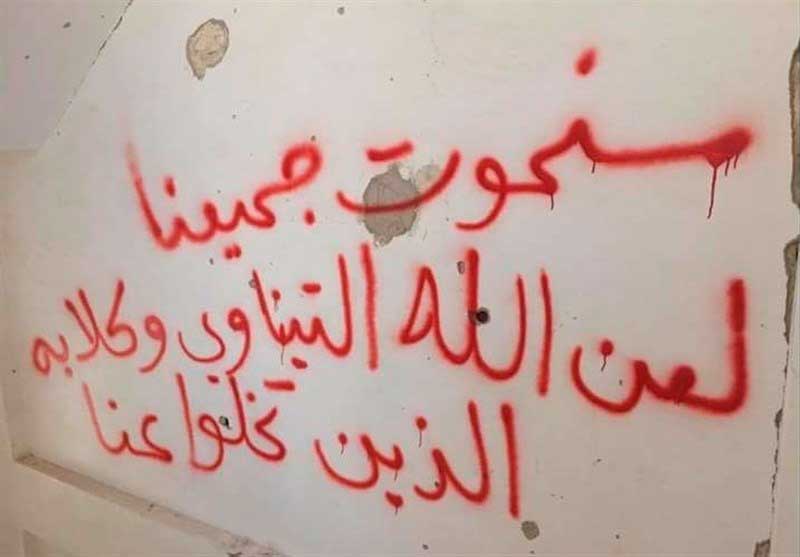 سنموت جميعنا
لعن الله التيناوي وكلابه
الذين تخلوا عنا